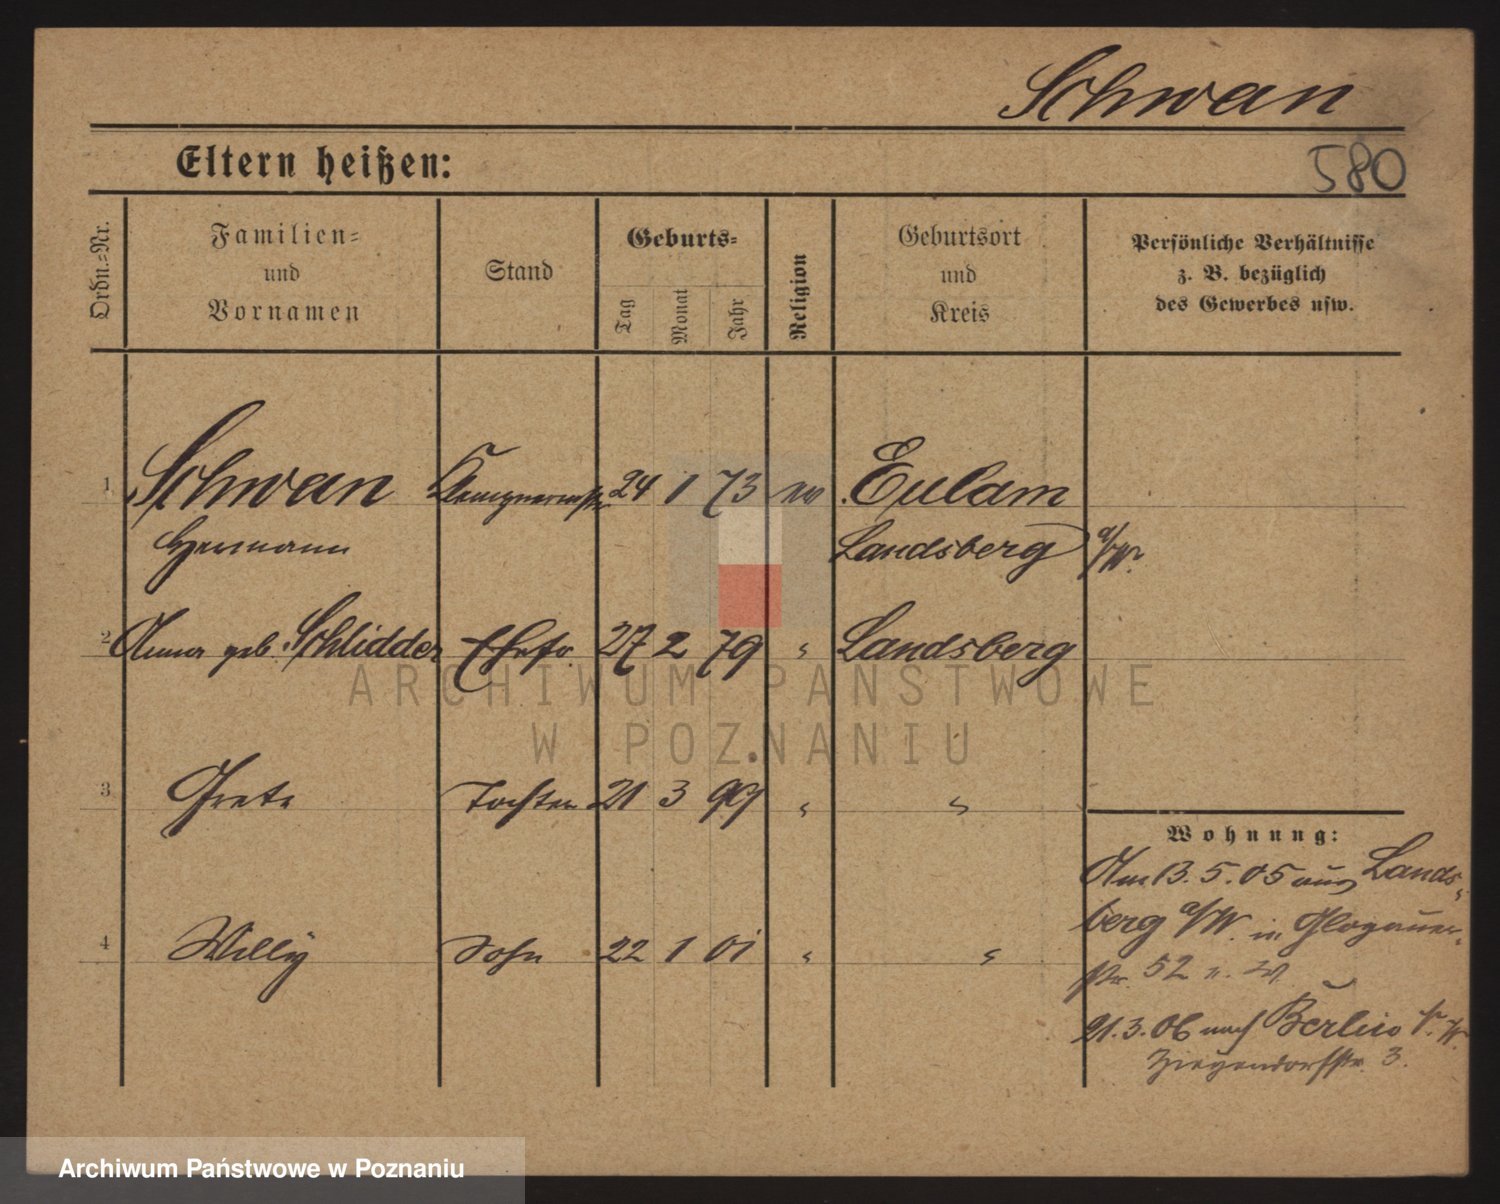 Schwan
Eltern heißen:
580
Ordn.-Nr.
Familien-
und
Vornamen
Stand
Geburts-
Tag
Monat
Jahr
Religion
Geburtsort
und
Kreis
Persönliche Verhältnisse
z. B. bezüglich
des Gewerbes usw.
1 Schwan Klempnermstr 24 1 73 ev Eulam
Hermann Landsberg a/W.
2 Anna geb. Schlidder Ehefr. 27 2 79 " Landsberg
ARCHIWUM PAŃSTWOWE
W POZNANIU
3 Grete Tochter 21 3 99 " "
4 Willy Sohn 22 1 01 " "
Wohnung:
Am 13.5.05 aus Lands-
berg a/W. in Glogauer-
str. 52
21.3.06 nach Berlin
3.
Archiwum Państwowe w Poznaniu